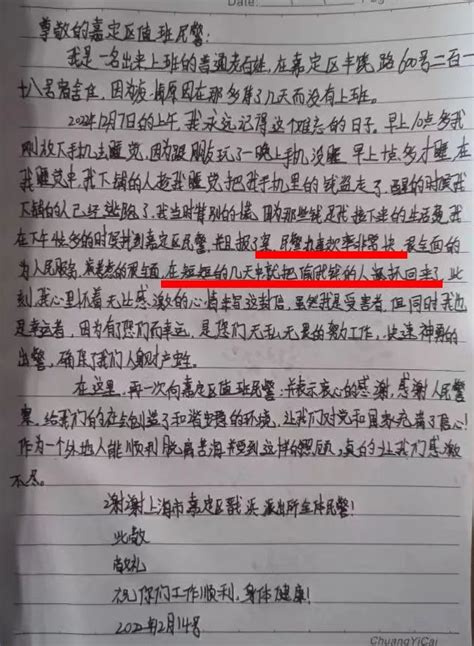 Date:
尊敬的嘉定区值班民警:
我是一名出来上班的普通老百姓,在嘉定区丰饶路600号二百一
十八号宿舍住,因为疫情原因在那多待了几天而没有上班。
2022年12月7日的上午,我永远记得这个难忘的日子。早上10点多我
刚放下手机去睡觉,因为跟朋友玩了一晚上手机没睡,早上10点多才睡,在
我睡觉中,我下铺的人趁我睡觉把我手机里的钱盗走了,醒的时候我
下铺的人已经跑了,我当时特别的慌,因为那些钱是我接下来的生活费,我
在下午4点多的时候找到嘉定区民警,并且报了案,民警办事效率非常快,很全面的
为人民服务,在短短的几天中就把偷我钱的人抓回来了,此
刻我心里怀着无比感激的心情来写这封信,虽然我是受害者,但同时我也
是幸运者,因为有了您们而幸运,是您们无私无畏的努力工作,快速神勇的
出警,确保了我们人身财产安全。
在这里,再一次向嘉定区值班民警,并表示衷心的感谢,感谢人民警
察,给我们的存在创造了和谐安稳的环境,让我们对党和国家充满了信心!
作为一个外地人能顺利脱离苦海并得到这样的照顾,真的让我们感激
不尽。
谢谢上海市嘉定区 派出所全体民警!
此致
敬礼
祝你们工作顺利,身体健康!
2022年2月14号
ChuangYiCai